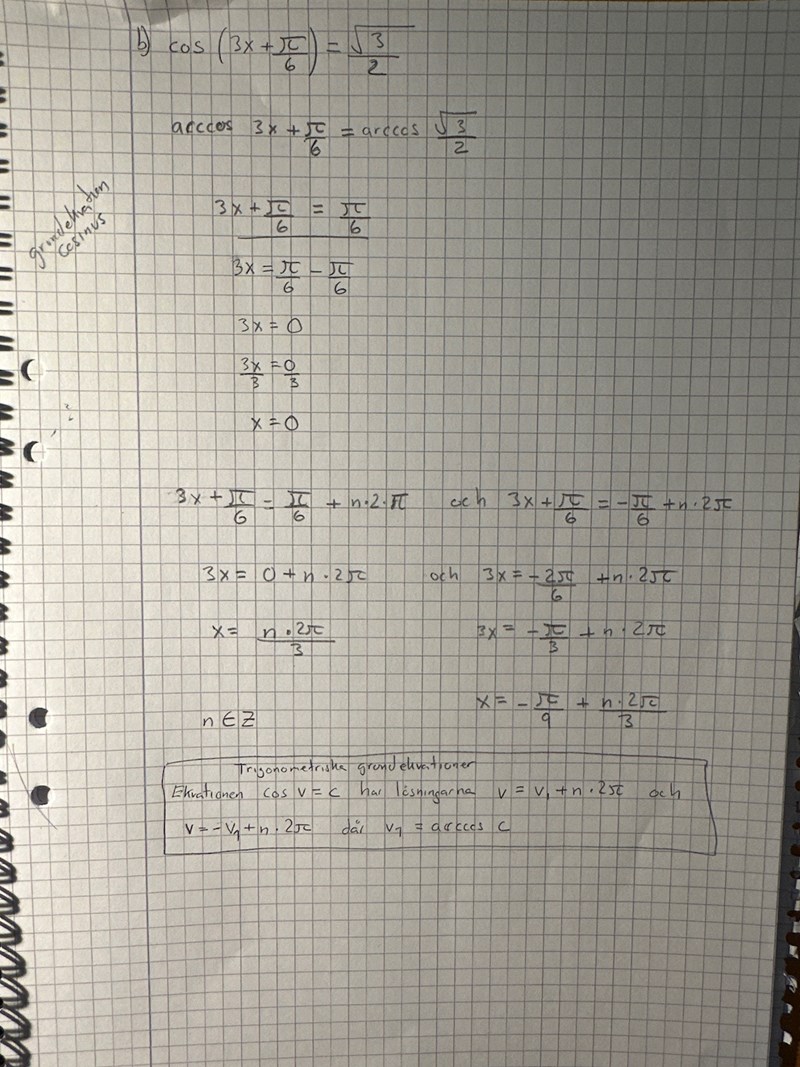 b) cos (3x + π/6) = √3/2
arccos 3x + π/6 = arccos √3/2
grundekvation
cosinus
3x + π/6 = π/6
3x = π/6 - π/6
3x = 0
3x/3 = 0/3
x = 0
3x + π/6 = π/6 + n·2·π och 3x + π/6 = -π/6 + n·2π
3x = 0 + n·2π och 3x = -2π/6 + n·2π
x = n·2π/3 3x = -π/3 + n·2π
n ∈ Z x = -π/9 + n·2π/3
Trigonometriska grundekvationer
Ekvationen cos v = c har lösningarna v = v₁ + n·2π och
v = -v₁ + n·2π där v₁ = arccos c